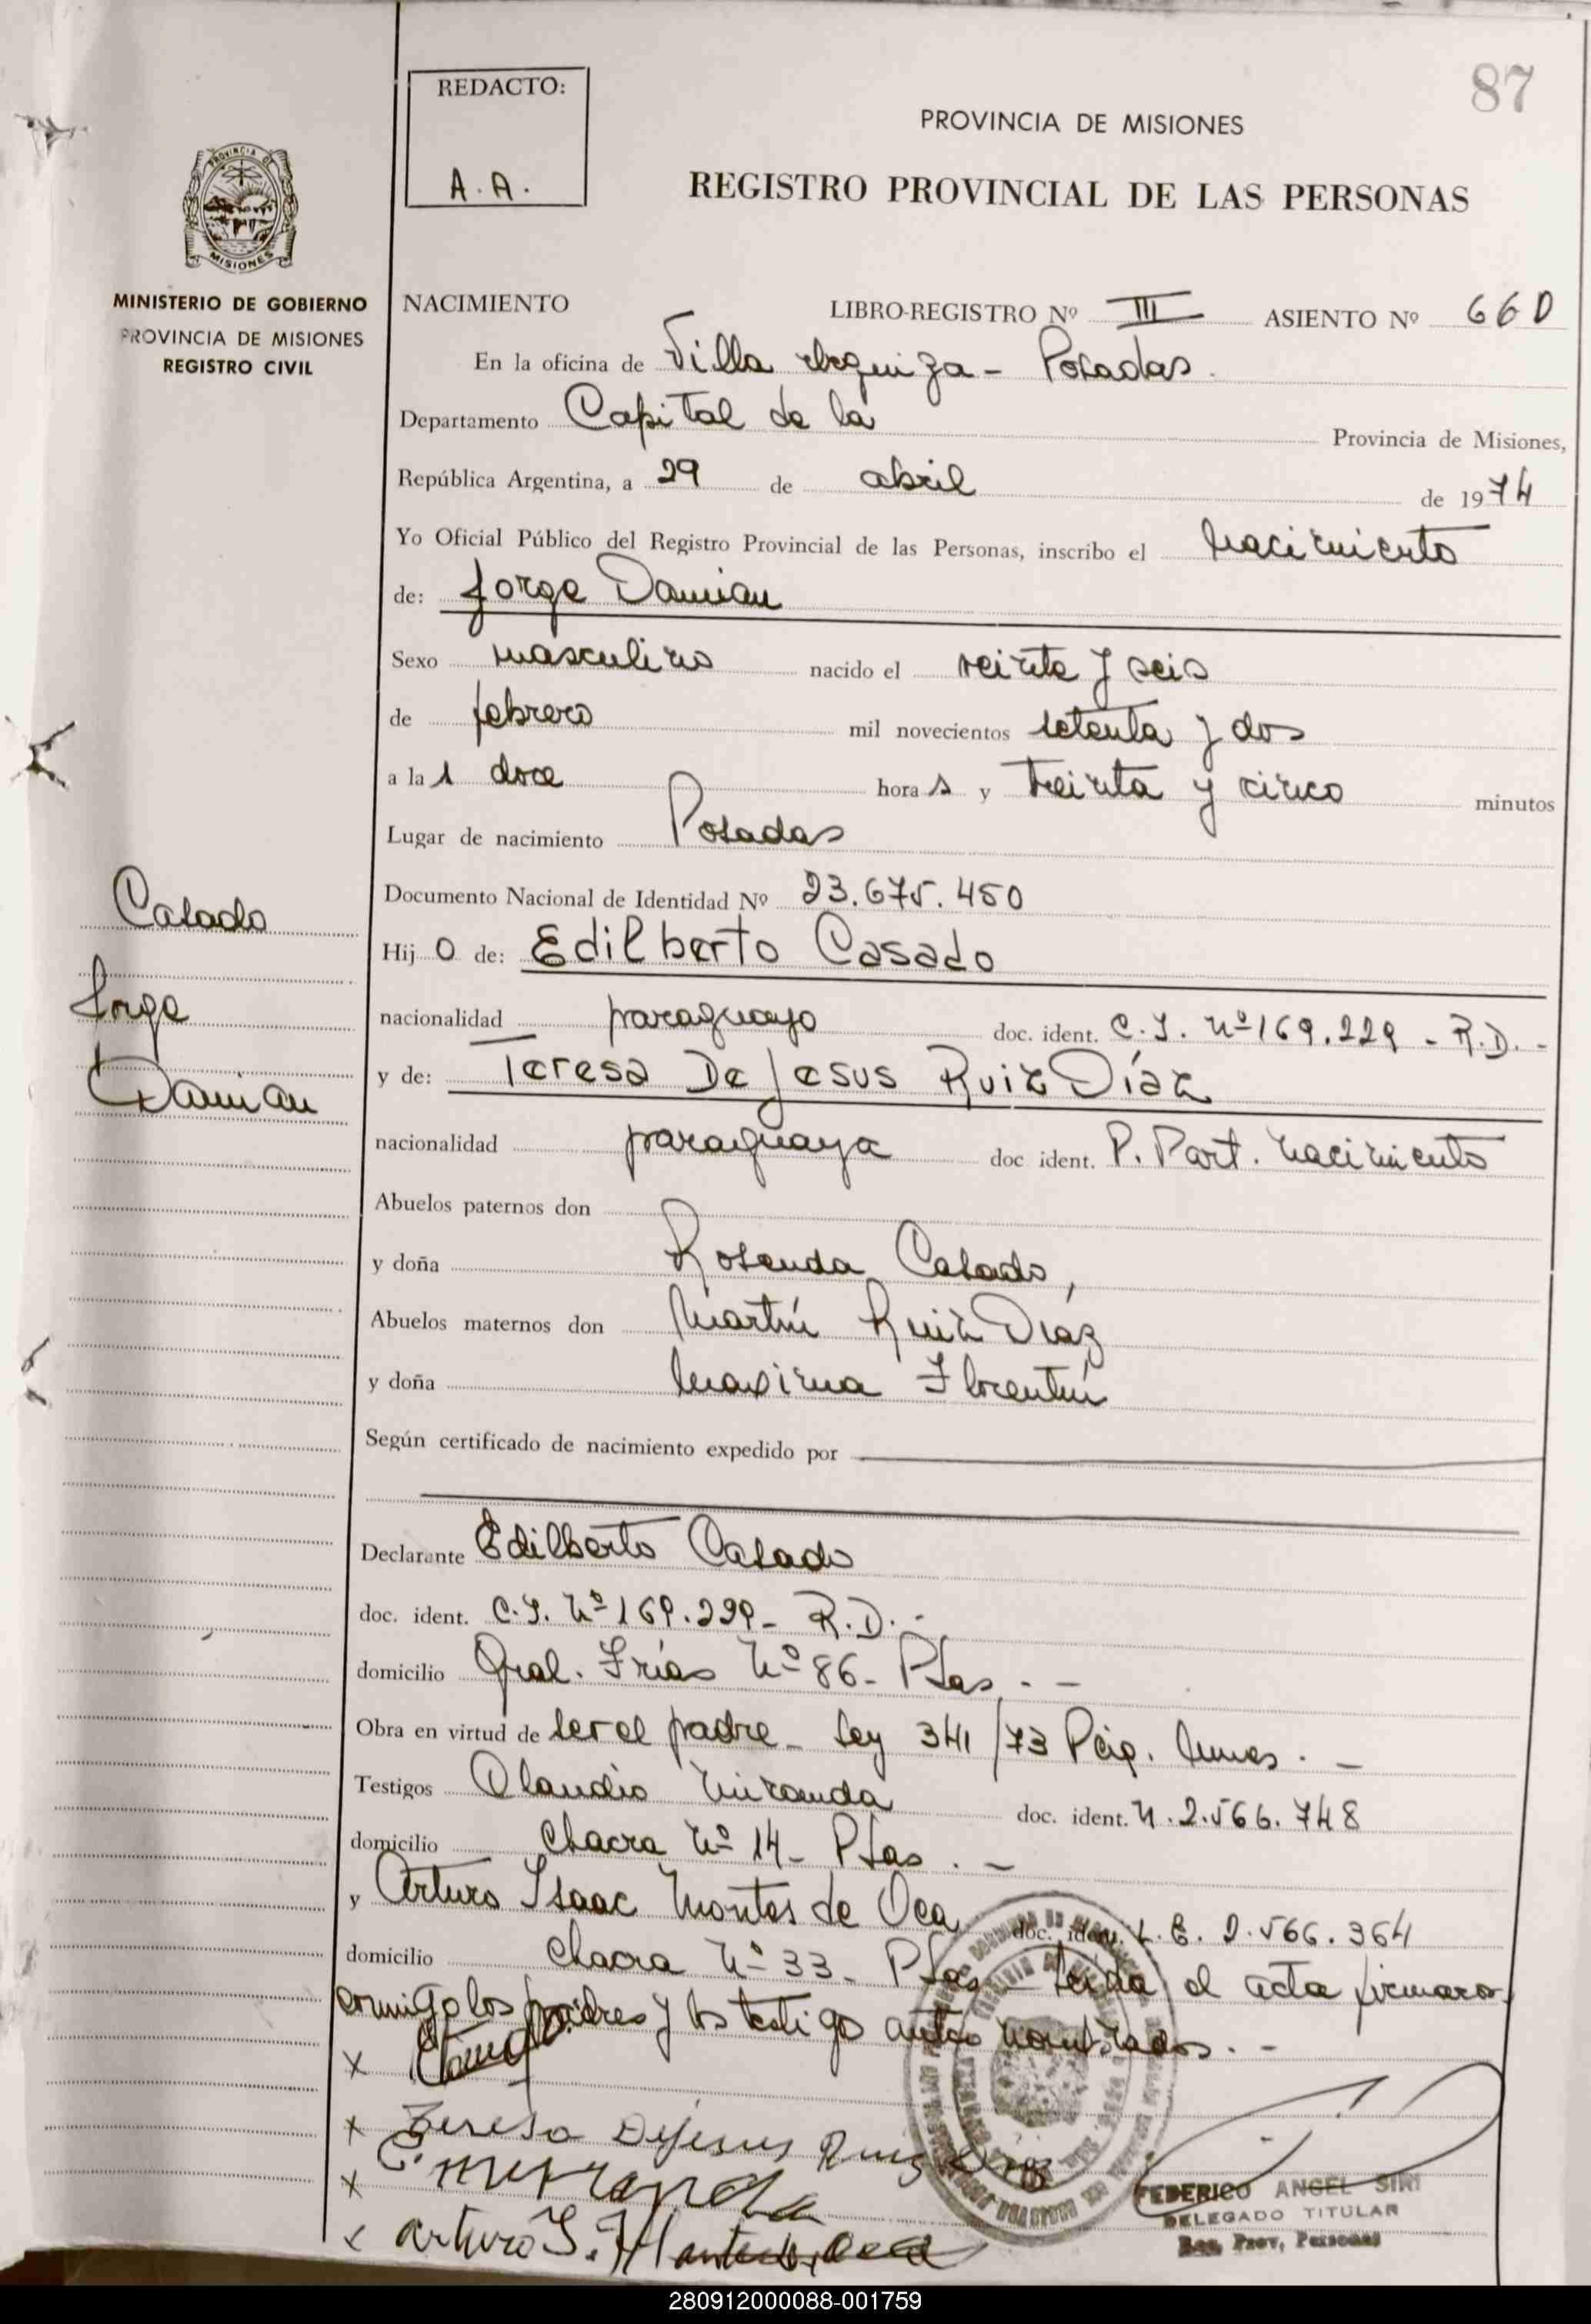 87
REDACTO:
A.A.
PROVINCIA DE MISIONES
REGISTRO PROVINCIAL DE LAS PERSONAS
PROVINCIA DE
MISIONES
MINISTERIO DE GOBIERNO
PROVINCIA DE MISIONES
REGISTRO CIVIL
NACIMIENTO LIBRO-REGISTRO Nº III ASIENTO Nº 660
En la oficina de Villa Urquiza - Posadas.
Departamento Capital de la Provincia de Misiones,
República Argentina, a 29 de abril de 1974
Yo Oficial Público del Registro Provincial de las Personas, inscribo el nacimiento
de: Jorge Damian
Sexo masculino nacido el veinte y seis
de febrero mil novecientos setenta y dos
a las doce horas y treinta y cinco minutos
Lugar de nacimiento Posadas
Casado
Jorge
Damian
Documento Nacional de Identidad Nº 23.675.450
Hijo de: Edilberto Casado
nacionalidad paraguayo doc. ident. C.I. Nº 169.229 - R.D. -
y de: Teresa De Jesus Ruiz Díaz
nacionalidad paraguaya doc ident. P. Part. nacimiento
Abuelos paternos don
y doña Rosenda Casado,
Abuelos maternos don Martín Ruiz Díaz
y doña Maxima Florentín
Según certificado de nacimiento expedido por
Declarante Edilberto Casado
doc. ident. C.I. Nº 169.229 - R.D. -
domicilio Gral. Frías Nº 86 - Psas. -
Obra en virtud de ser el padre - Ley 341/73
Testigos Claudio Miranda doc. ident. 2.566.748
domicilio Chacra Nº 14 - Psas. -
y Arturo Isaac Montes de Oca doc. ident. L.E. 2.566.364
domicilio Chacra Nº 33 - Psas - Leída el acta firmaron
conmigo los padres y los testigo antes nombrados. -
x
x Teresa Dejesus Ruiz Diaz
x C. Miranda
x Arturo I. Montes de Oca
FEDERICO ANGEL SIRI
DELEGADO TITULAR
Reg. Prov. Personas
280912000088-001759